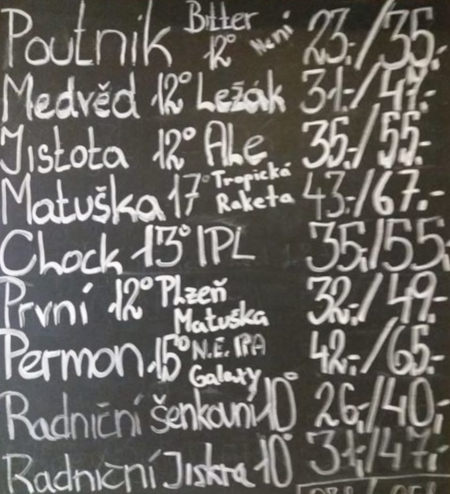 Poutnik Bitter 12° Není 23.-/35.-
Medvěd 12° Ležák 31.-/47.-
Jistota 12° Ale 35.-/55.-
Matuška 17° Tropická Raketa 43.-/67.-
Chock 13° IPL 35,-/55,-
První 12° Plzeň Matuška 32.-/49.-
Permon 15° N.E. IPA Galaxy 42.-/65.-
Radniční Šenkovní 10° 26,-/40,-
Radniční Jiskra 10° 31,-/47,-